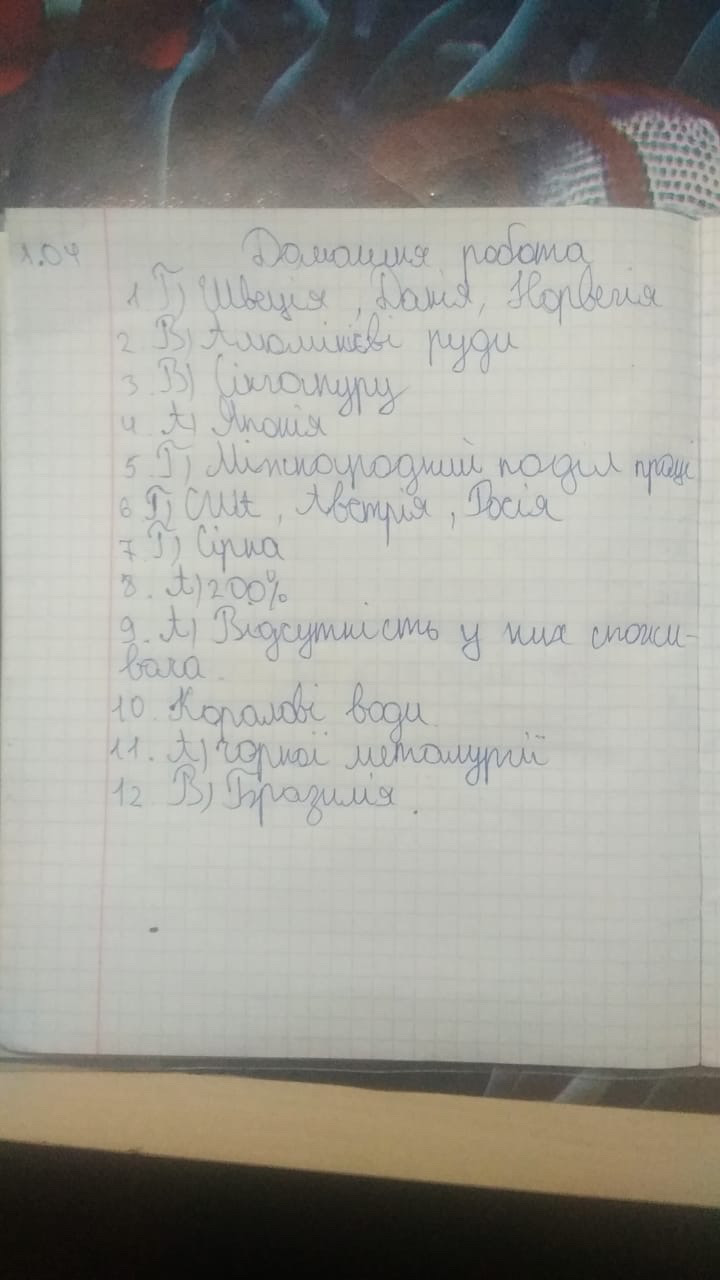 1.04
Домашня робота
1 Г) Швеція, Данія, Норвегія
2 В) Алюмінієві руди
3 В) Сінгапуру
4 А) Японія
5 Г) Міжнародний поділ праці
6 Г) США, Австрія, Росія
7 Г) Сірка
8. А) 200%
9. А) Відсутність у них спожи-
вача.
10. Коралові води
11. А) Чорної металургії
12 В) Бразилія.